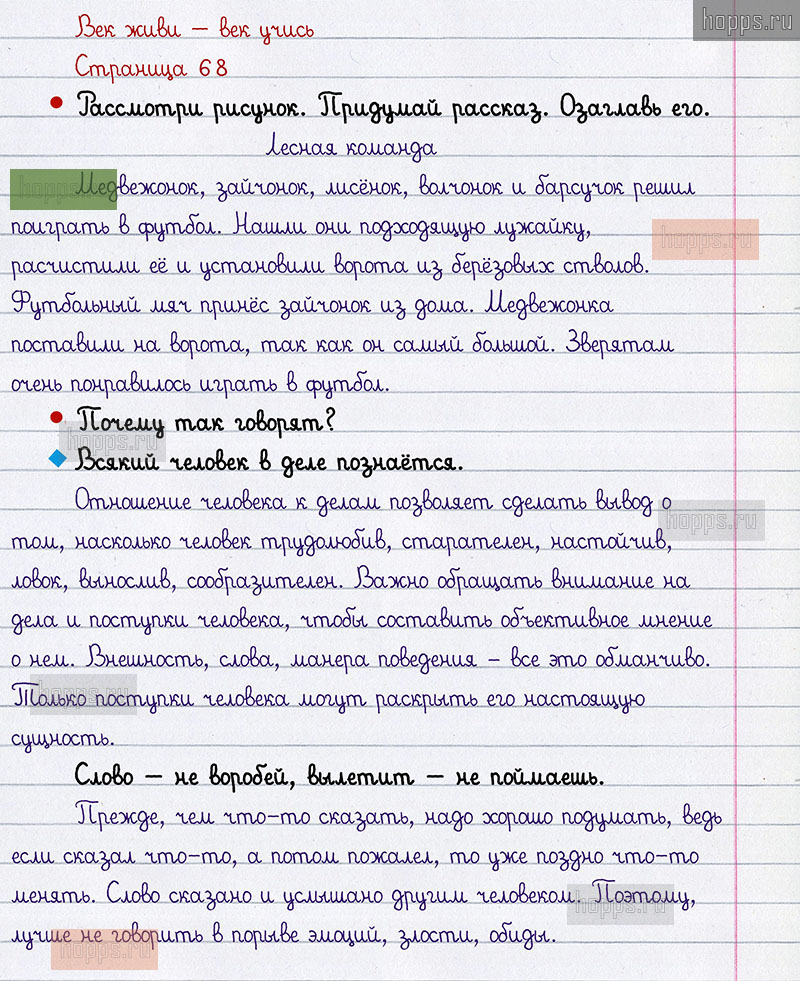 hopps.ru
Век живи — век учись
Страница 68
• Рассмотри рисунок. Придумай рассказ. Озаглавь его.
Лесная команда
hopps.ru
Медвежонок, зайчонок, лисёнок, волчонок и барсучок решил
поиграть в футбол. Нашли они подходящую лужайку,
hopps.ru
расчистили её и установили ворота из берёзовых стволов.
Футбольный мяч принёс зайчонок из дома. Медвежонка
поставили на ворота, так как он самый большой. Зверятам
очень понравилось играть в футбол.
• Почему так говорят?
hopps.ru
Всякий человек в деле познаётся.
Отношение человека к делам позволяет сделать вывод о
hopps.ru
том, насколько человек трудолюбив, старателен, настойчив,
ловок, вынослив, сообразителен. Важно обращать внимание на
дела и поступки человека, чтобы составить объективное мнение
о нем. Внешность, слова, манера поведения – все это обманчиво.
Только поступки человека могут раскрыть его настоящую
hopps.ru
сущность.
Слово — не воробей, вылетит — не поймаешь.
Прежде, чем что-то сказать, надо хорошо подумать, ведь
если сказал что-то, а потом пожалел, то уже поздно что-то
менять. Слово сказано и услышано другим человеком. Поэтому,
hopps.ru
лучше не говорить в порыве эмоций, злости, обиды.
hopps.ru